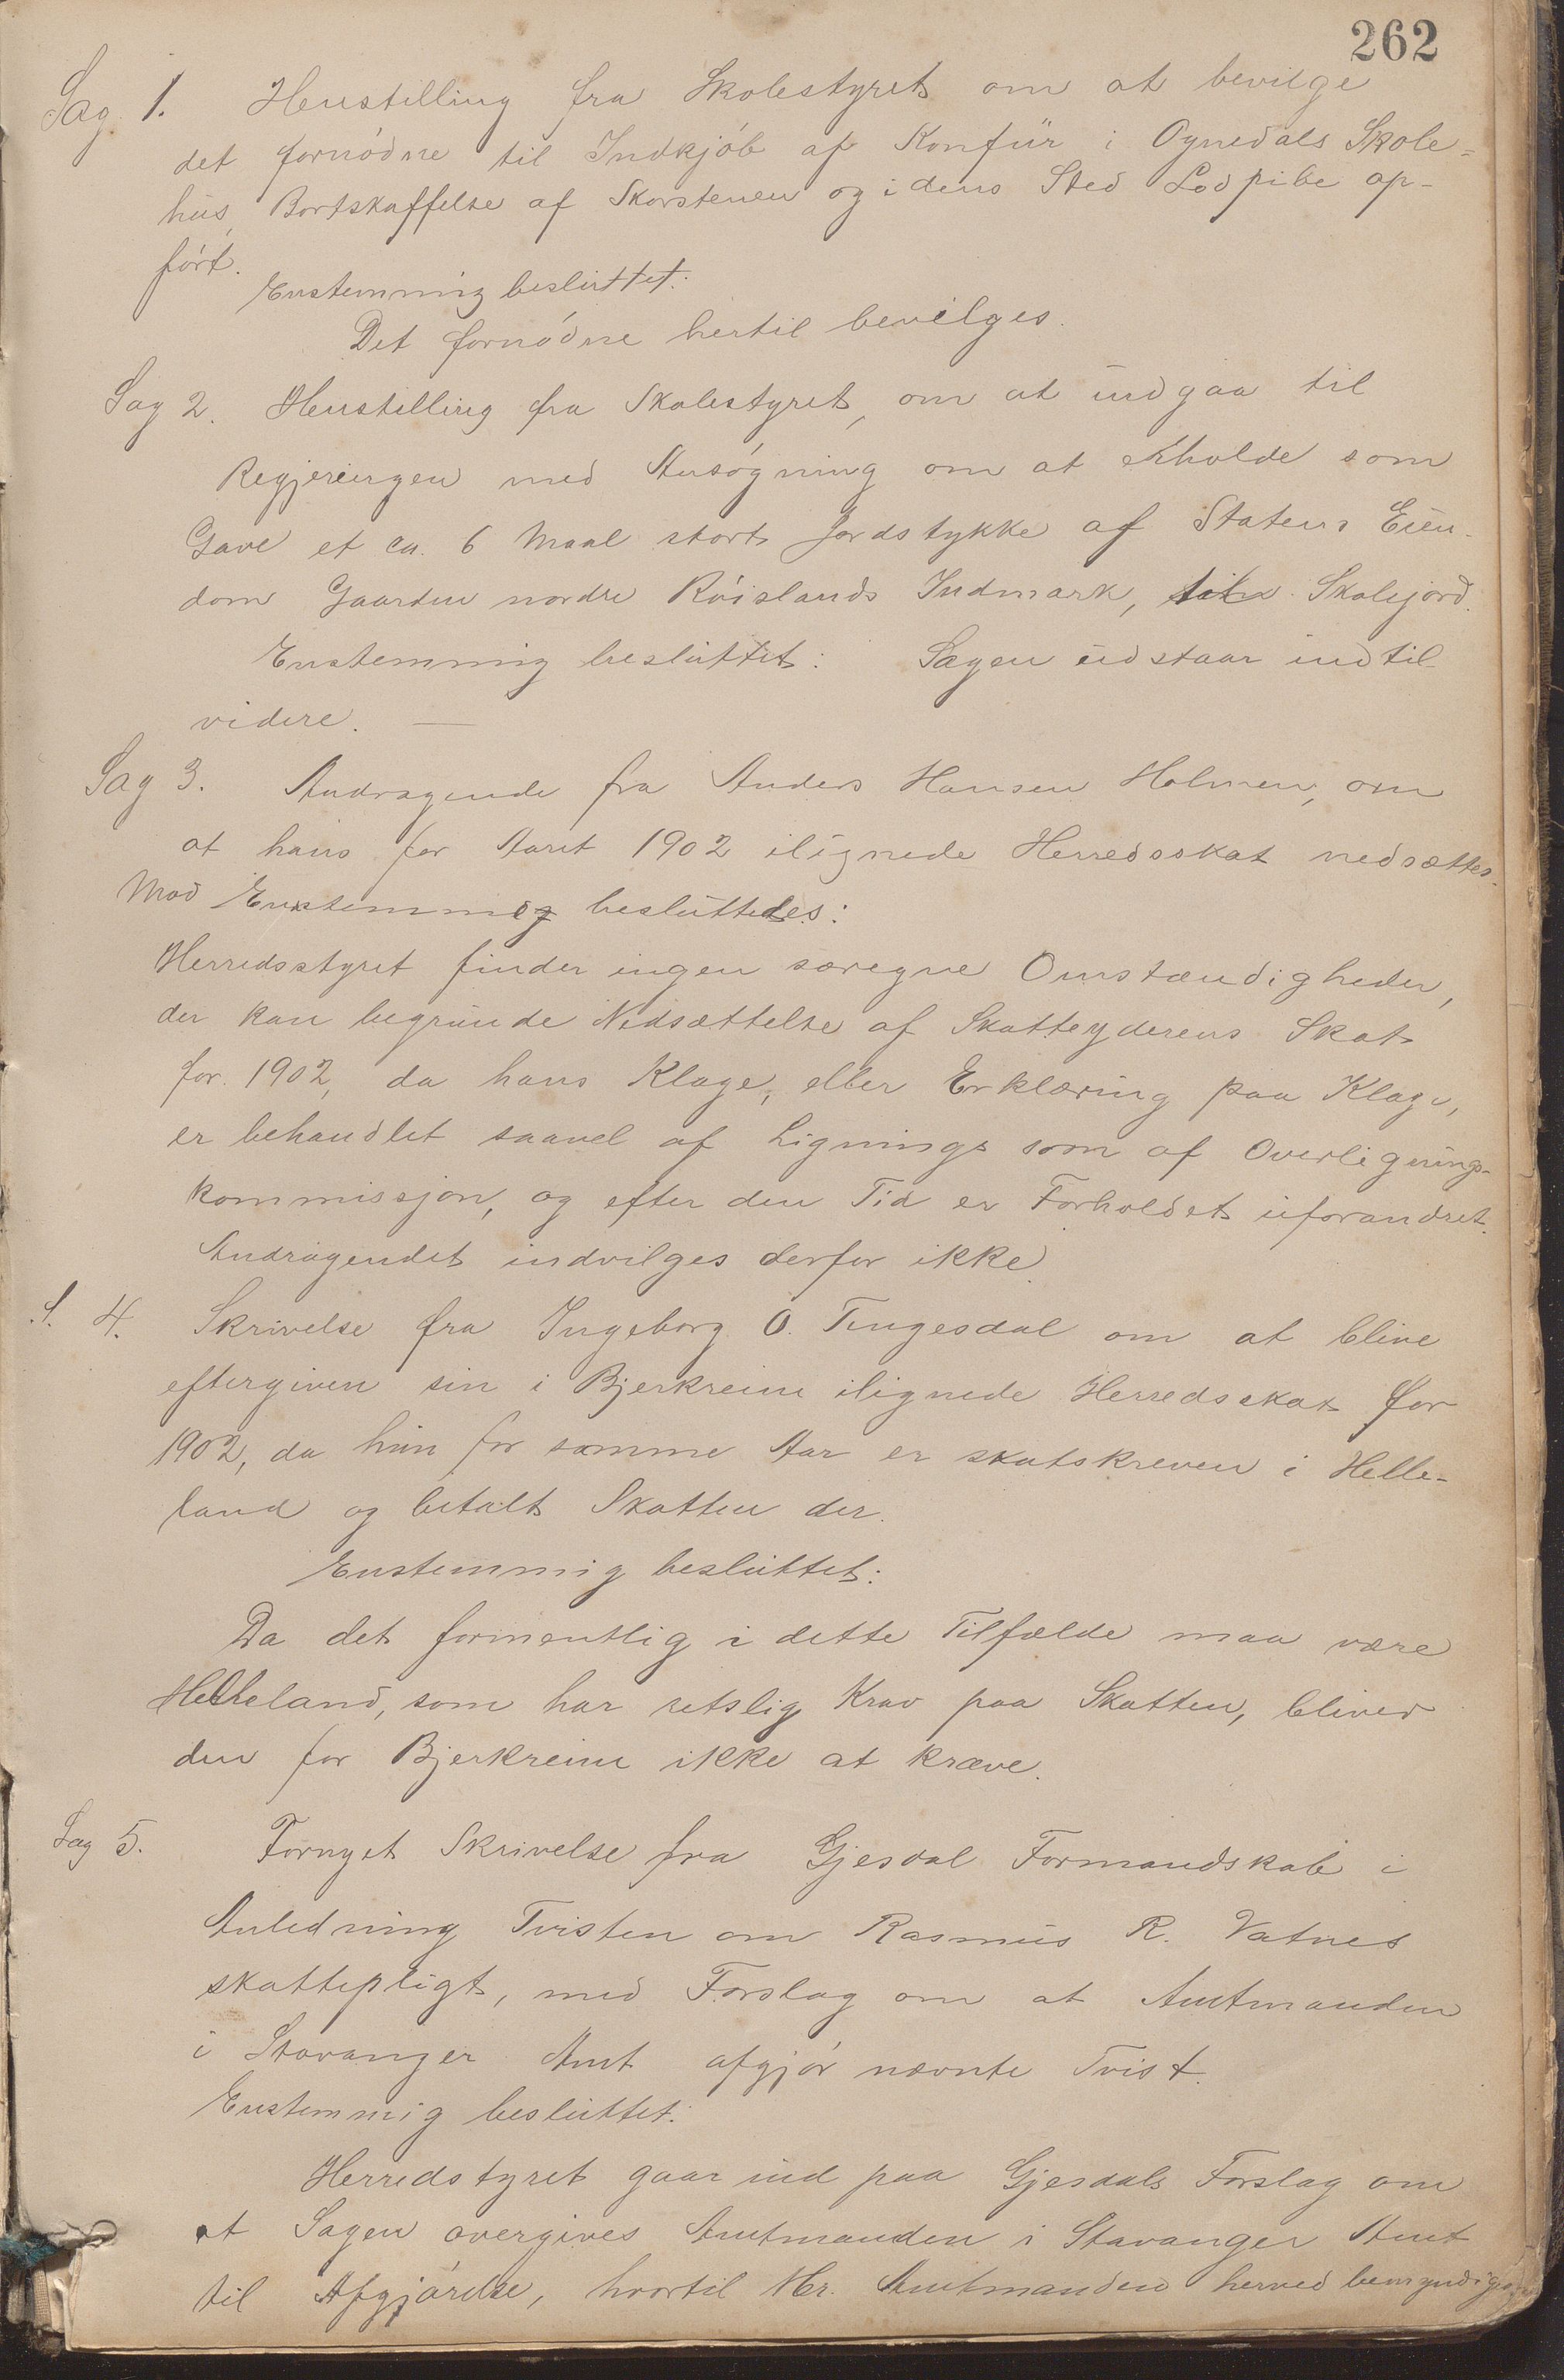 262
Sag 1. Henstilling fra Skolestyret om at bevilge
det fornödne til Indkjöb af Komfür i Ognedals Skole-
hus, Bortskaffelse af Skorstenen og i dens Sted Lodpibe op-
fört.
Enstemmig besluttet:
Det fornödne hertil bevilges.
Sag 2. Henstilling fra Skolestyret, om at indgaa til
Regjeringen med Ansögning om at erholde som
Gave et ca. 6 Maal stort Jordstykke af Statens Eien-
dom Gaarden nordre Röislands Indmark, til Skolejord.
Enstemmig besluttet: Sagen udstaar indtil
videre. —
Sag 3. Andragende fra Anders Hansen Holmen, om
at hans for Aaret 1902 ilignede Herredsskat nedsættes.
Mod Enstemmig besluttedes:
Herredsstyret finder ingen særegne Omstændigheder,
der kan begrunde Nedsættelse af Skatteyderens Skat
for 1902, da hans Klage, eller Erklæring paa Klage,
er behandlet saavel af Lignings som af Overlignings-
kommissjon, og efter den Tid er Forholdet uforandret.
Andragendet indvilges derfor ikke.
S. 4. Skrivelse fra Ingeborg O. Tengesdal om at blive
eftergiven sin i Bjerkreim ilignede Herredsskat for
1902, da hun for samme Aar er skatskreven i Helle-
land og betalt Skatten der.
Enstemmig besluttet:
Da det formentlig i dette Tilfælde maa være
Helleland, som har retslig Krav paa Skatten, bliver
den for Bjerkreim ikke at kræve.
Sag 5. Fornyet Skrivelse fra Gjesdal Formandskab i
Anledning Tvisten om Rasmus R. Vatnes
skattepligt, med Forslag om at Amtmanden
i Stavanger Amt afgjör nævnte Tvist.
Enstemmig besluttet:
Herredstyret gaar ind paa Gjesdals Forslag om
at Sagen overgives Amtmanden i Stavanger Amt
til Afgjörelse, hvortil Hr. Amtmanden herved bemyndiges